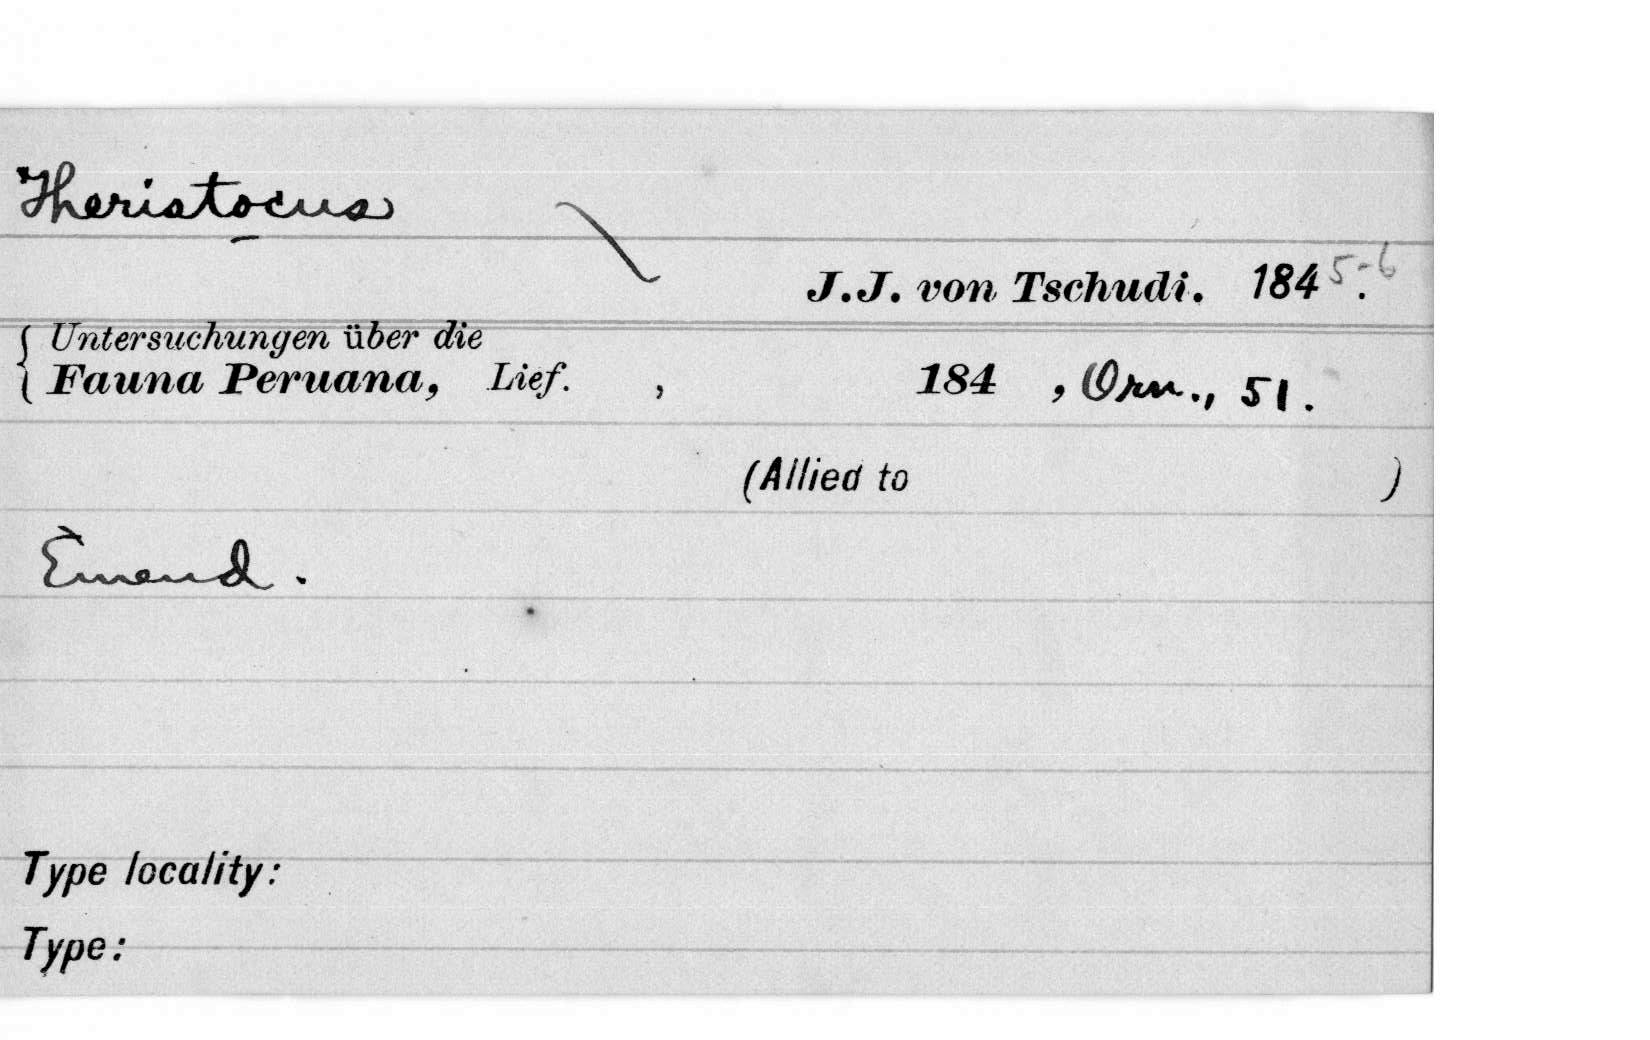 Theristocus
J.J. von Tschudi. 1845-6.
Untersuchungen über die
Fauna Peruana, Lief. , 184 , Orn., 51.
(Allied to )
Emend.
Type locality:
Type: